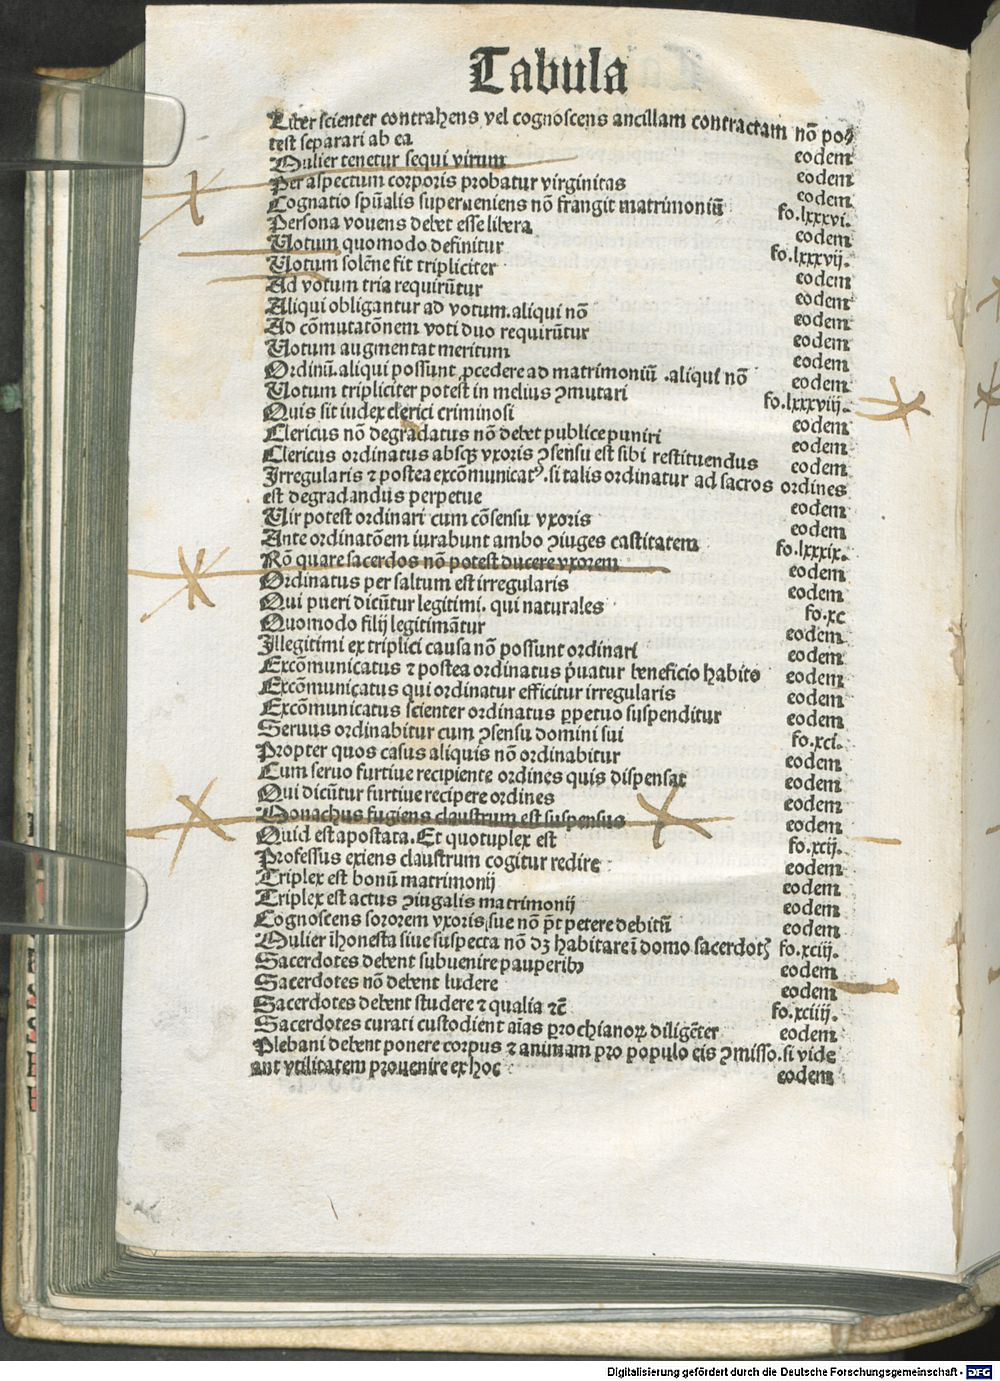 Tabula
Liber scienter contrahens vel cognoscens ancillam contractam nō poꝰ
test separari ab ea eodem
Mulier tenetur sequi virum eodem
Per aspectum corporis probatur virginitas eodem
Cognatio spūalis superueniens nō frangit matrimoniū fo.lxxxvi.
Persona vouens debet esse libera eodem
Uotum quomodo definitur fo.lxxxvij.
Uotum solēne fit tripliciter eodem
Ad votum tria requirūtur eodem
Aliqui obligantur ad votum.aliqui nō eodem
Ad cōmutatōnem voti duo requirūtur eodem
Uotum augmentat meritum eodem
Ordinū.aliqui possunt ꝓcedere ad matrimoniū .aliqui nō eodem
Uotum tripliciter potest in melius ꝯmutari fo.lxxxviij.
Quis sit iudex clerici criminosi eodem
Clericus nō degradatus nō debet publice puniri eodem
Clericus ordinatus absqꝫ vxoris ꝯsensu est sibi restituendus eodem
Irregularis ⁊ postea excōmunicatꝰ.si talis ordinatur ad sacros ordines
est degradandus perpetue eodem
Uir potest ordinari cum cōsensu vxoris eodem
Ante ordinatōem iurabunt ambo ꝯiuges castitatem fo.lxxxix.
Rō quare sacerdos nō potest ducere vxorem eodem
Ordinatus per saltum est irregularis eodem
Qui pueri dicūtur legitimi. qui naturales fo.xc
Quomodo filij legitimātur eodem
Illegitimi ex triplici causa nō possunt ordinari eodem
Excōmunicatus ⁊ postea ordinatus p̄uatur beneficio habito eodem
Excōmunicatus qui ordinatur efficitur irregularis eodem
Excōmunicatus scienter ordinatus ꝑpetuo suspenditur eodem
Seruus ordinabitur cum ꝯsensu domini sui fo.xci.
Propter quos casus aliquis nō ordinabitur eodem
Cum seruo furtiue recipiente ordines quis dispensat eodem
Qui dicūtur furtiue recipere ordines eodem
Monachus fugiens claustrum est suspensus eodem
Quid est apostata. Et quotuplex est fo.xcij.
Professus exiens claustrum cogitur redire eodem
Triplex est bonū matrimonij eodem
Triplex est actus ꝯiugalis matrimonij eodem
Cognoscens sororem vxoris sue nō p̄t petere debitū eodem
Mulier īhonesta siue suspecta nō dꝫ habitare ī domo sacerdotꝭ fo.xciij.
Sacerdotes debent subuenire pauperibꝰ eodem
Sacerdotes nō debent ludere eodem
Sacerdotes debent studere ⁊ qualia ⁊c̄ fo.xciiij.
Sacerdotes curati custodient aīas ꝑrochianoꝝ diligēter eodem
Plebani debent ponere corpus ⁊ animam pro populo eis ꝯmisso.si vide
ant vtilitatem prouenire ex hoc eodem
Digitalisierung gefördert durch die Deutsche Forschungsgemeinschaft - DFG